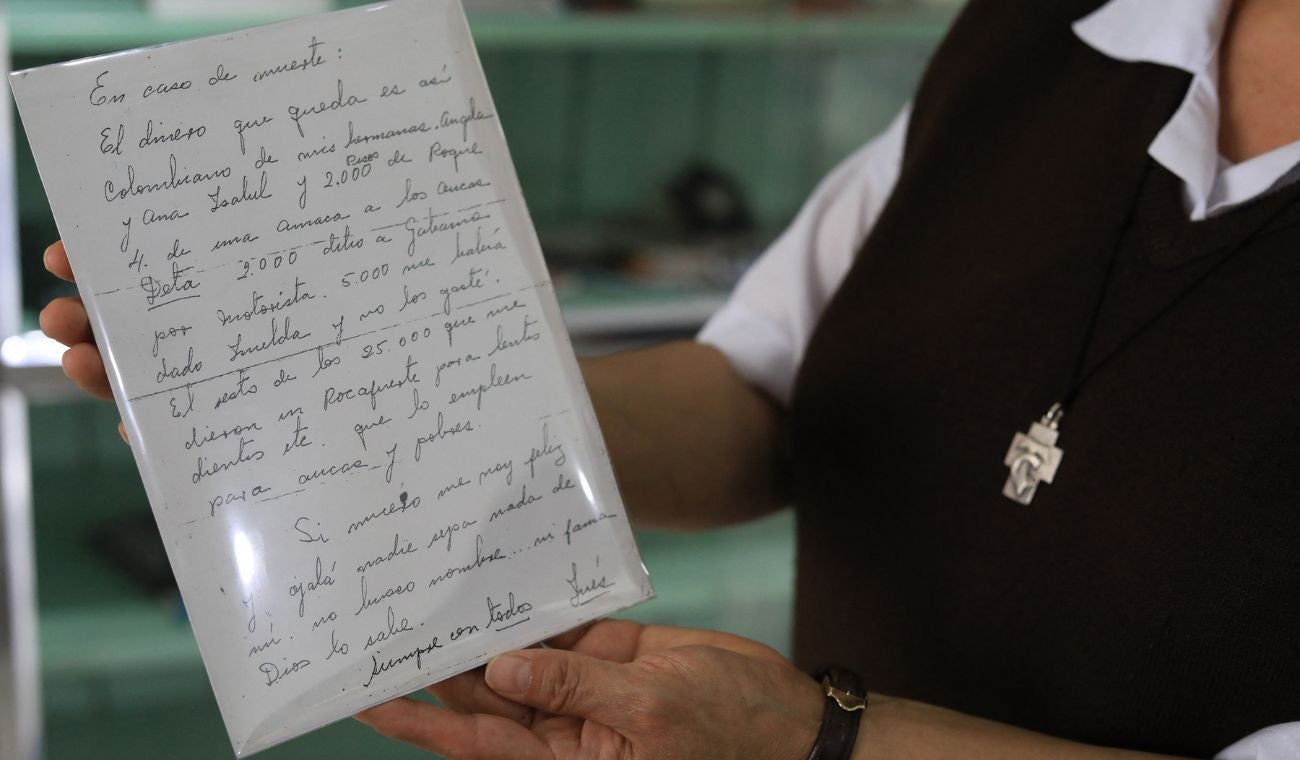 En caso de muerte:
El dinero que queda es así
Colombiano de mis hermanas. Angela
y Ana Isabel y 2.000 Pesos de Roque
4. de una amaca a los aucas
Deta 2.000 ditio a Gateamo
por motorista. 5.000 me había
dado Imelda y no los gasté.
El resto de los 25.000 que me
dieron in Rocafuerte para lentes
dientes etc. que lo empleen
para aucas y pobres.
Si muero me voy feliz
y ojalá nadie sepa nada de
mí. no busco nombre... ni fama
Dios lo sabe.
Siempre con todos Inés